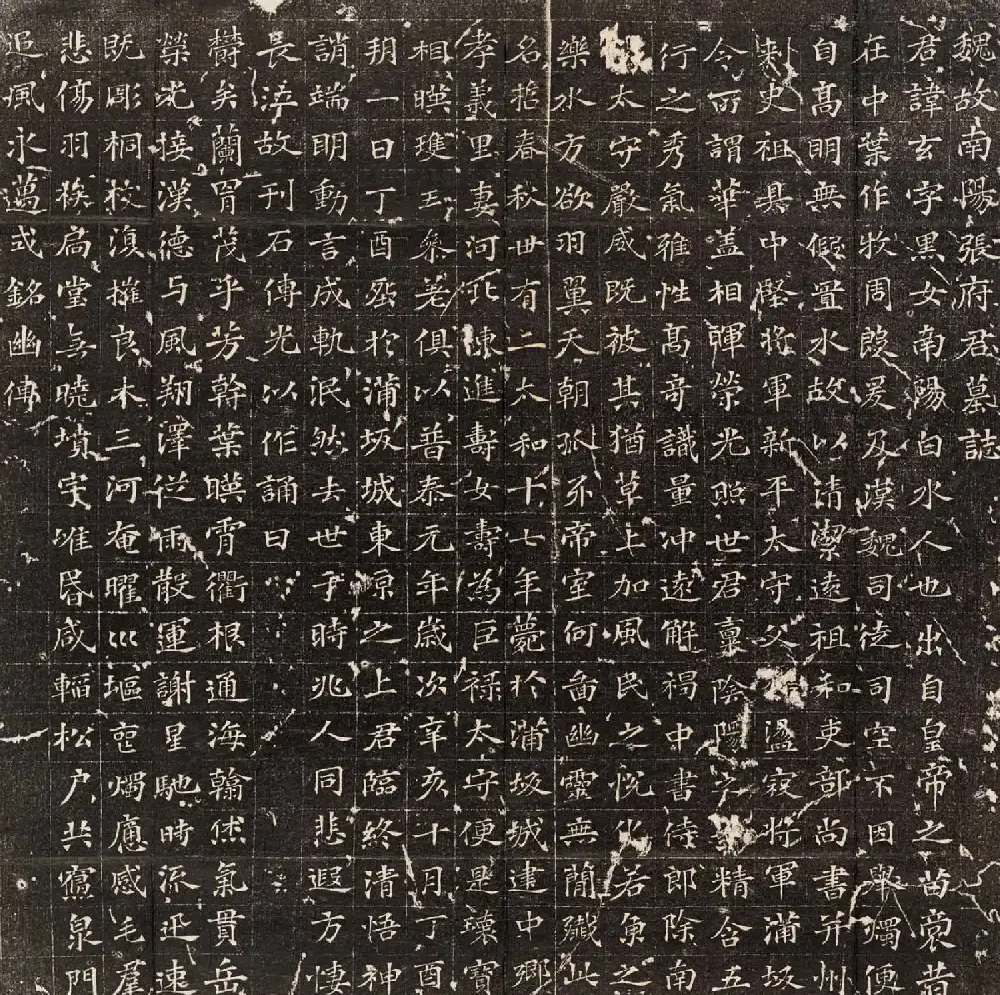 魏故南陽張府君墓誌
君諱玄字黑女南陽白水人也出自皇帝之苗裔昔
在中葉作牧周殷爰及漢魏司徒司空不因舉燭便
自高明無假置水故以清潔遠祖和吏部尚書并州
刾史祖具中堅將軍新平太守父盪寇將軍蒲坂
令所謂華蓋相暉榮光照世君禀陰陽之精含五
行之秀氣雅性高奇識量冲遠解褐中書侍郎除南
太守嚴威既被其猶草上加風民之悅化若魚之
樂水方欲羽翼天朝抓牙帝室何啚幽靈無簡殲此
名哲春秋卅有二太和十七年薨於蒲坂城建中鄉
孝義里妻河北陳進壽女壽為巨祿太守便是瓌寶
相暎瓊玉叅差俱以普泰元年歲次辛亥十月丁酉
朔一日丁酉㘸於蒲坂城東原之上君臨終清悟神
誚端明動言成軌泯然去世于時兆人同悲遐方悽
長泣故刊石傳光以作誦曰
欝矣蘭胄茂乎芳幹葉暎霄衢根通海翰烋氣貫岳
榮光接漢德与風翔澤從雨散運謝星馳時流迅速
既彫桐枝復摧良木三河奄曜巛塸㐫燭痛感毛羣
悲傷羽族扃堂無曉墳宇唯昏咸輜松户共寢泉門
追風永邁式銘幽傳